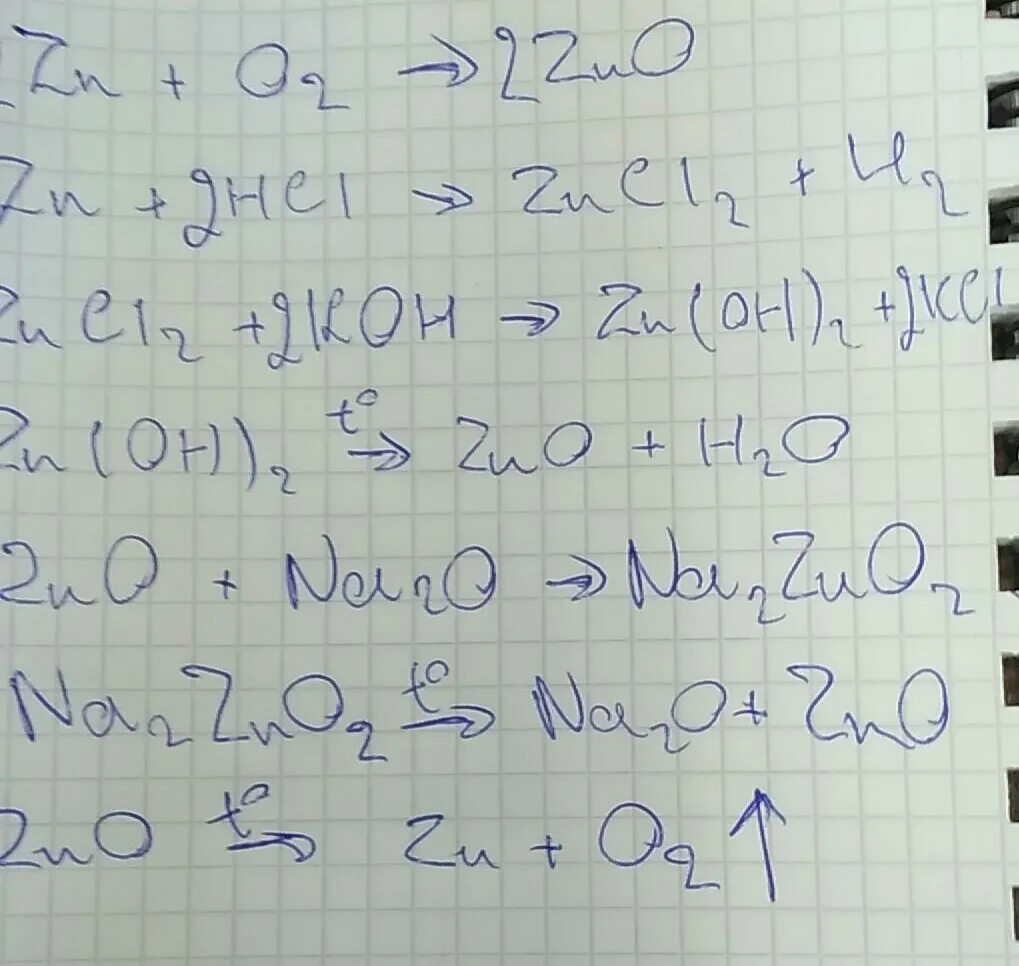 2Zn + O₂ → 2ZnO
Zn + 2HCl → ZnCl₂ + H₂
ZnCl₂ + 2KOH → Zn(OH)₂ + 2KCl
Zn(OH)₂ t° → ZnO + H₂O
ZnO + Na₂O → Na₂ZnO₂
Na₂ZnO₂ t° → Na₂O + ZnO
ZnO t° → Zn + O₂ ↑